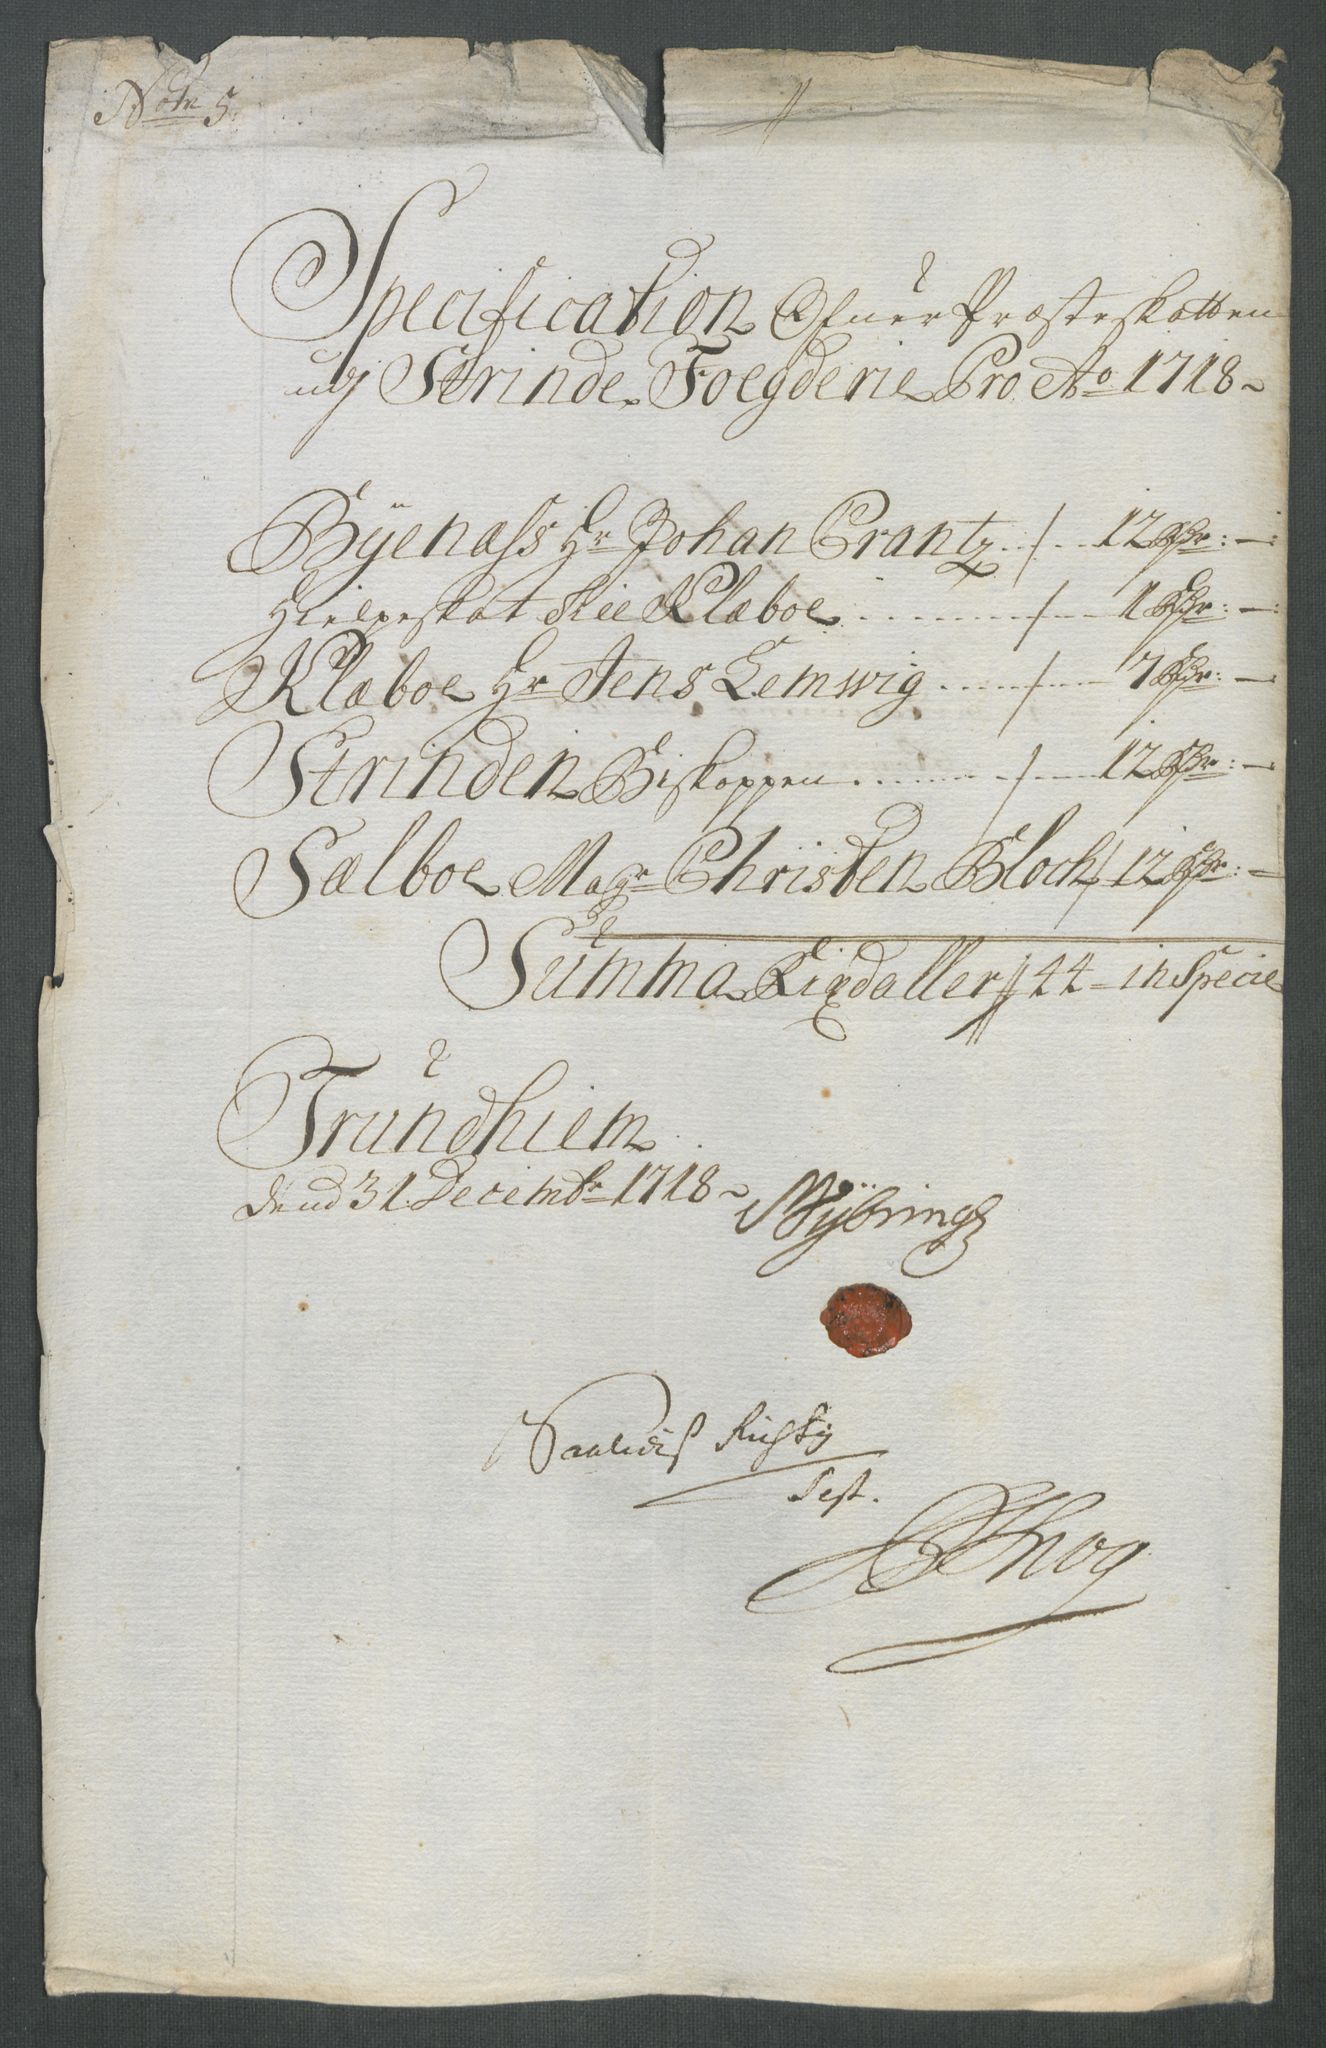 Notn 5.
Specification Ofuer Præsteskatten
udj Strinde Foegderie Pro Ao 1718
Byenæss Hr Johan Crantz ./. 12 Rdr: —:
Hielpeskat till Klæboe ....../. 1 Rdr: —:
Klæboe Hr Jens Lemwig ..../. 7 Rdr: —
Strinden Biskoppen ...../. 12 Rdr: —
Sælboe Magr Christen Bloch / 12 Rdr: —
Summa Rixdaller // 44 - in Specie
Trundhiem
dend 31 Decembr 1718
Test.